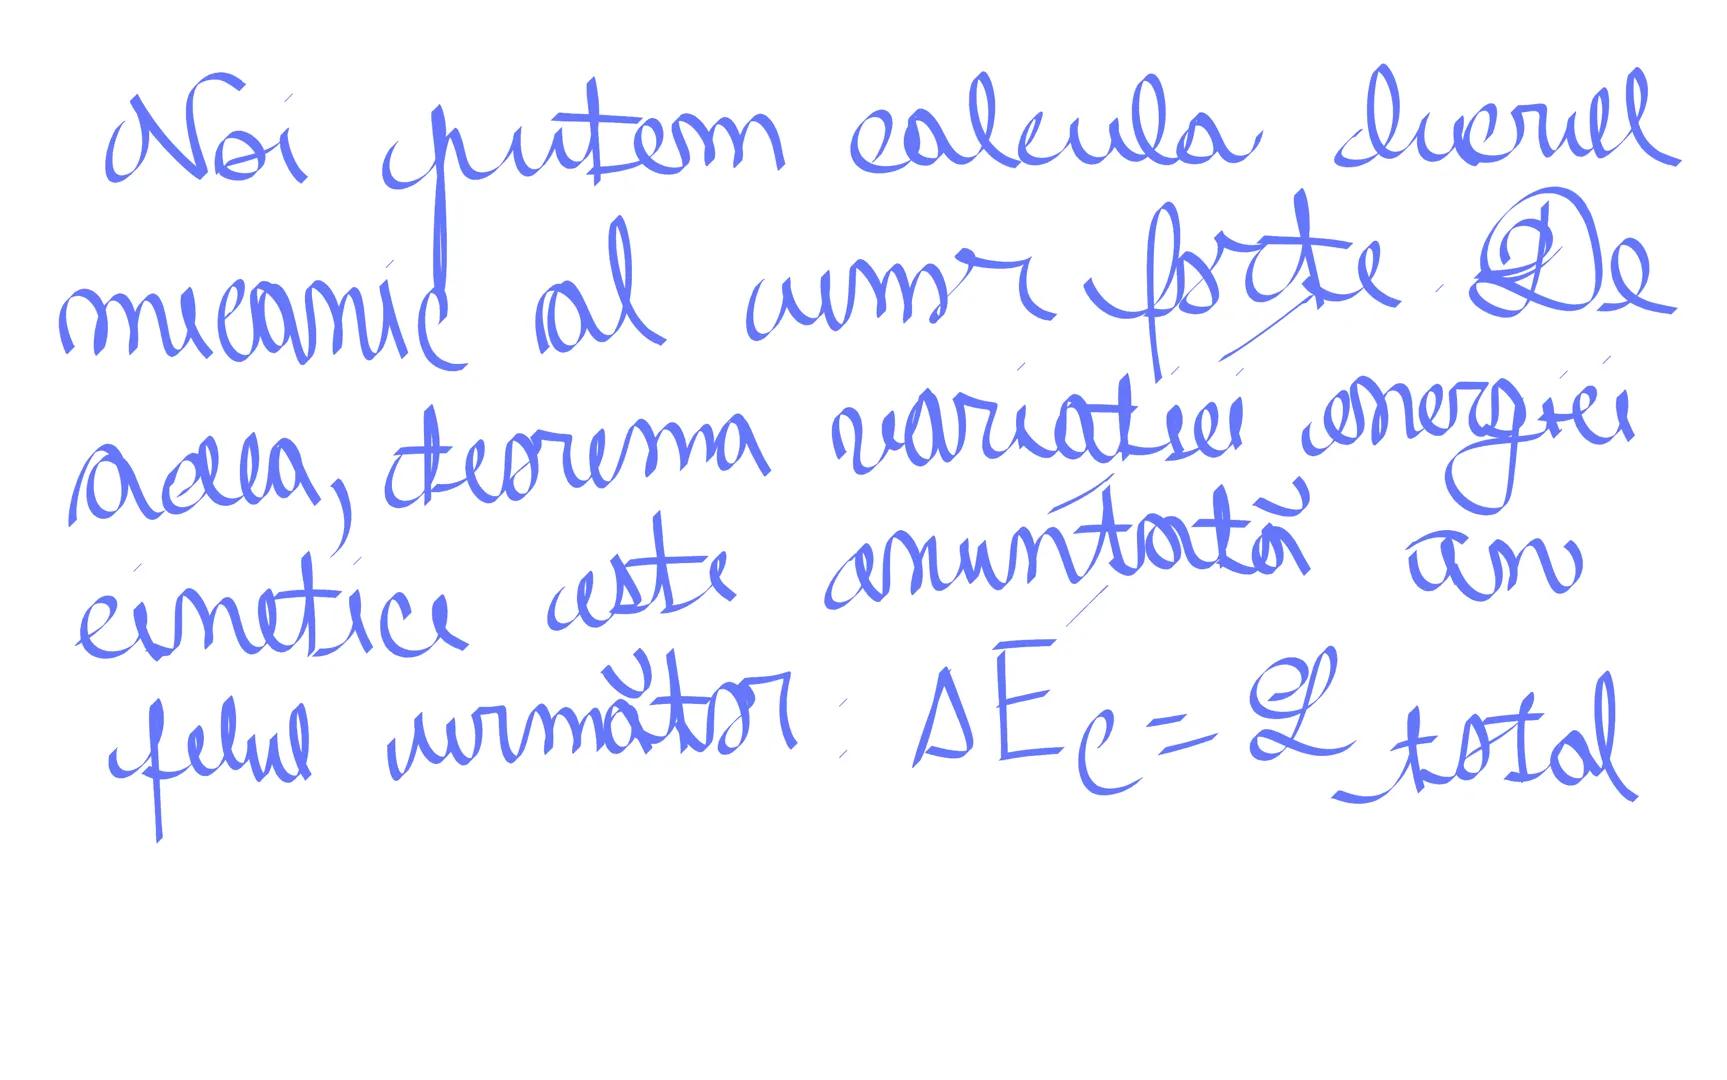 Noi putem calcula lucrul
mecanic al unor forțe. De
aceea, teorema variației energiei
cinetice este enunțată în
felul următor: ΔEc = L total